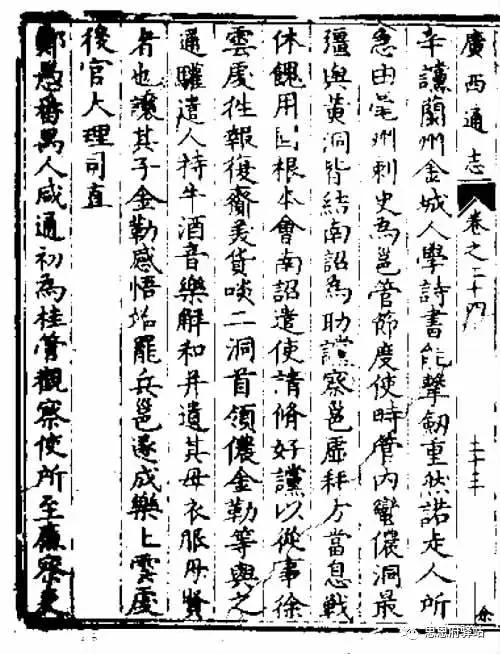 廣西通志 卷之二十四 二十三 余
辛讜蘭州金城人學詩書能擊劒重然諾走人所
急由亳州刺史為邕管節度使時管內蠻儂洞最
彊與黃洞皆結南詔為助讜察邕虛耗方當息戰
休餽用固根本會南詔遣使請脩好讜以從事徐
雲虔徃報復齎美貨啖二洞首領儂金勒等與之
通驩遣人持牛酒音樂解和并遺其母衣服母賢
者也讓其子金勒感悟始罷兵邕遂成樂上雲虔
後官大理司直
鄭愚番禺人咸通初為桂管觀察使所至廉察吏
思恩府驿站